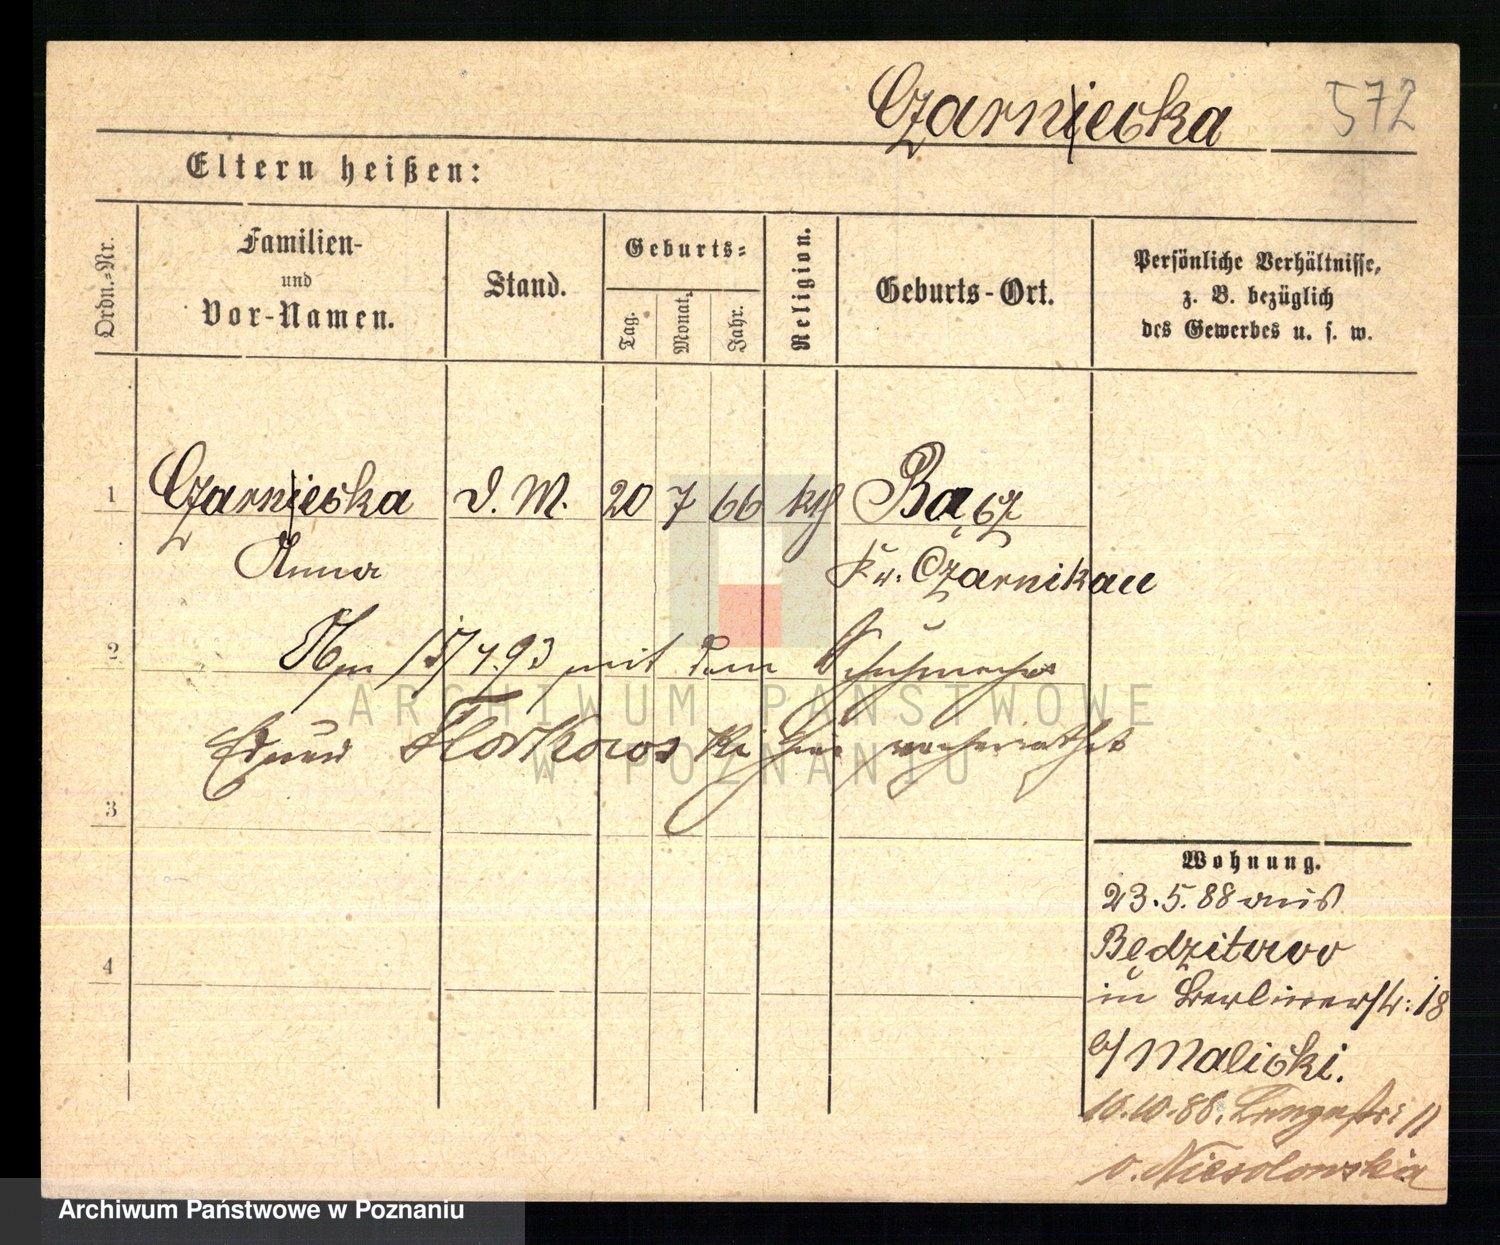 Czarniecka 572
Eltern heißen:
Ordn.-Nr.
Familien-
und
Vor-Namen.
Stand.
Geburts-
Tag.
Monat.
Jahr.
Religion.
Geburts-Ort.
Persönliche Verhältnisse,
z. B. bezüglich
des Gewerbes u. s. w.
1 Czarniecka D. M. 20 7 66 kth
Anna Kr. Czarnikau
2 mit dem Schuhmacher
Florkowski hier verheirathet
3
4
Wohnung.
23.5.88 aus
Będzitowo
in Berlinerstr: 18
b/ Malicki.
10.10.88. Langestr: 11
v. Niesolowska
ARCHIWUM PAŃSTWOWE
W POZNANIU
Archiwum Państwowe w Poznaniu